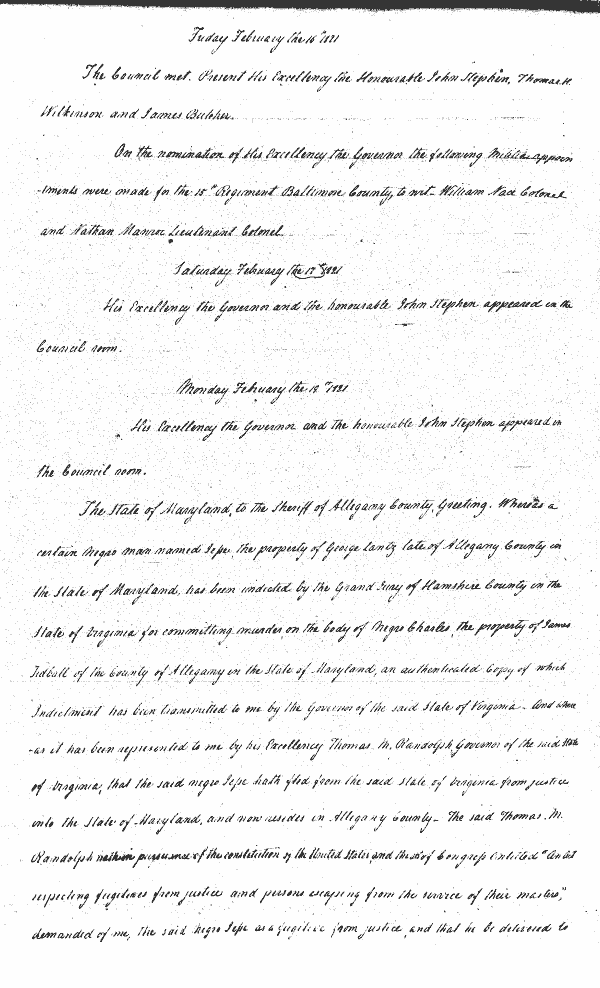 Friday February the 16th 1821
The Council met. Present His Excellency the Honourable John Stephen, Thomas H.
Wilkinson and James Butcher.
On the nomination of His Excellency the Governor the following Militia appoin
-tments were made for the 15th Regiment Baltimore County, to wit William Nace Colonel
and Nathan Manroe Lieutenant Colonel.
Saturday February the 17th 1821
His Excellency the Governor and the honourable John Stephen appeared in the
Council room.
Monday February the 19th 1821
His Excellency the Governor and the honourable John Stephen appeared in
the Council room.
The State of Maryland, to the Sheriff of Allegany County, Greeting. Whereas a
certain negro man named Jesse the property of George Lantz late of Allegany County in
the State of Maryland, has been indicted by the Grand Jury of Hamshire County in the
State of Virginia for committing murder on the body of Negro Charles, the property of James
Tidball of the County of Allegany in the State of Maryland, an authenticated Copy of which
Indictment has been transmitted to me by the Governor of the said State of Virginia - And where
-as it has been represented to me by his Excellency Thomas M. Randolph Governor of the said State
of Virginia, that the said negro Jesse hath fled from the said State of Virginia from justice
into the State of Maryland, and now resides in Allegany County - The said Thomas M.
Randolph hath in pursuance of the constitution of the United States, and the act of Congress entitled "An Act
respecting fugitives from justice and persons escaping from the service of their masters",
demanded of me, the said negro Jesse as a fugitive from justice, and that he be delivered to